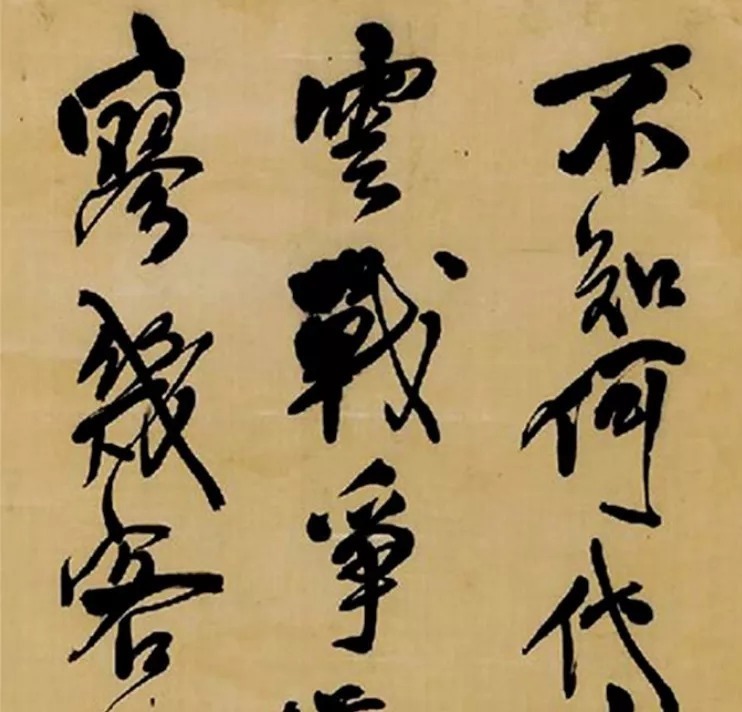 不知何代
雲戰爭
寥幾客